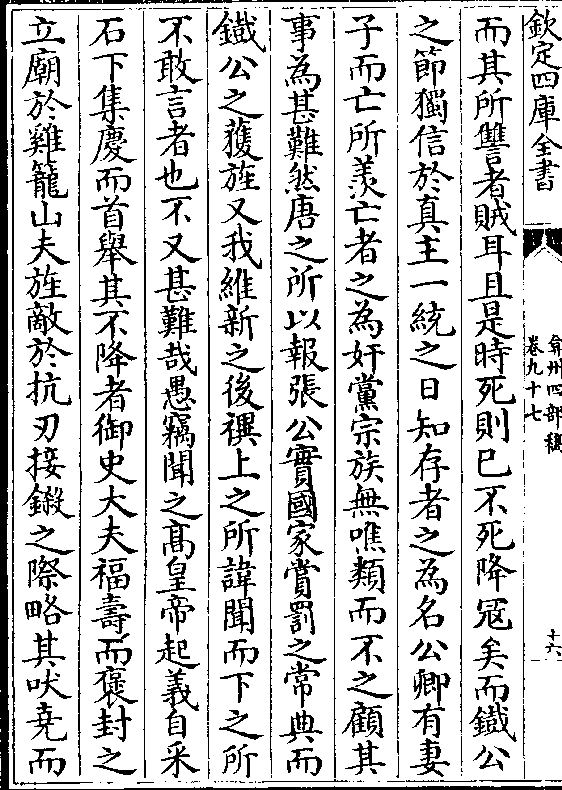 欽定四庫全書
弇州四部稿
卷九十七
十六
而其所讐者賊耳且是時死則已不死降冦矣而鐵公
之節獨信於真主一統之日知存者之為名公卿有妻
子而亡所羡亡者之為奸黨宗族無噍類而不之顧其
事為甚難然唐之所以報張公實國家賞罰之常典而
鐵公之蒦旌又我維新之後禩上之所諱聞而下之所
不敢言者也不又甚難哉愚竊聞之髙皇帝起義自采
石下集慶而首舉其不降者御史大夫福壽而褒封之
立廟於雞籠山夫旌敵於抗刃接鎩之際略其吠堯而